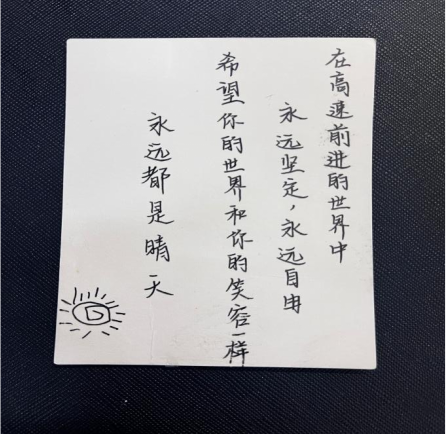 在高速前进的世界中
永远坚定，永远自由
希望你的世界和你的笑容一样
永远都是晴天